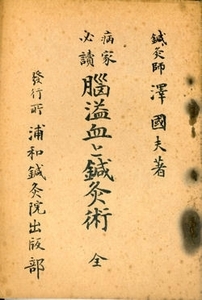 鍼灸師 澤國夫著
病家必讀
腦溢血と鍼灸術 全
發行所 浦和鍼灸院出版部